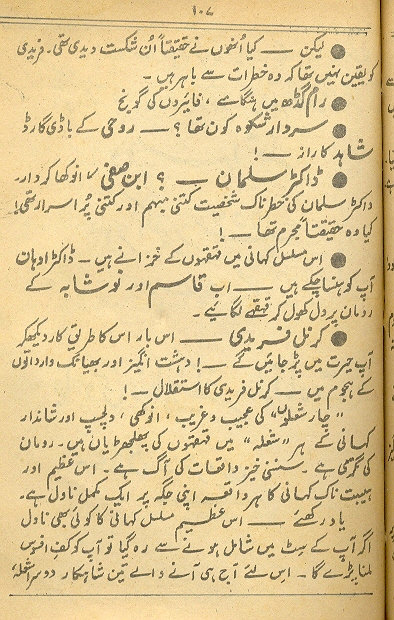 ۱۰۷
● لیکن — کیا اُنھوں نے حقیقتاً اُن شکست دیدی تھی۔ فریدی
کو یقین نہیں تھا کہ وہ خطرات سے باہر ہیں۔
● رام گڈھ میں ہنگامے، فائروں کی گونج
● سردار شکوہ کون تھا؟ — روحی کے باڈی گارڈ
شاہد کا راز — !
● ڈاکٹر سلمان — ؟ ابن صفی کا انوکھا کردار۔
ڈاکٹر سلمان کی خطرناک شخصیت کتنی مبہم اور کتنی پُر اسرار تھی!
کیا وہ حقیقتاً مجرم تھا — !
● اس مسلسل کہانی میں قہقہوں کے خزانے ہیں۔ ڈاکٹر اوہان
آپ کو ہنسا چکے ہیں — اب قاسم اور نوشابہ کے
رومان پر دل کھول کر قہقہے لگائیے۔
● کرنل فریدی — اس بار اس کا طریقِ کار دیکھکر
آپ حیرت میں پڑ جائیں گے — ! دہشت انگیز اور بھیانک وارداتوں
کے ہجوم میں — کرنل فریدی کا استقلال — !
"چار شعلوں" کی عجیب و غریب، انوکھی، دلچسپ اور شاندار
کہانی کے ہر "شعلہ" میں قہقہوں کی پھلجھڑیاں ہیں۔ رومان
کی گرمی ہے۔ سنسنی خیز واقعات کی آگ ہے۔ اس عظیم اور
ہیبت ناک کہانی کا ہر واقعہ اپنی جگہ پر ایک مکمل ناول ہے۔
یاد رکھئے — اس عظیم مسلسل کہانی کا کوئی بھی ناول
اگر آپ کے سِٹ میں شامل ہونے سے رہ گیا تو آپ کو کفِ افسوس
ملنا پڑے گا۔ اس لئے آج ہی آنے والے تین شاہکار دوسرا شعلہ